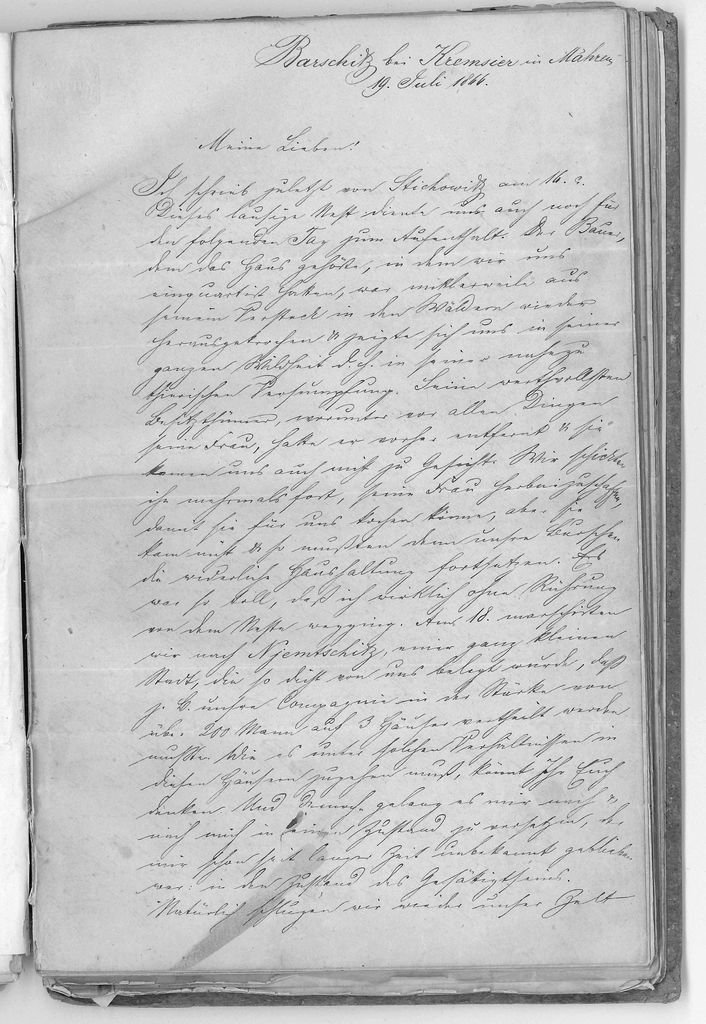 Barschitz bei Kremsier in Mähren
19. Juli 1866.
Meine Lieben!
Ich schrieb zuletzt von Stichowitz am 16. c.
Dieses lausige Nest diente uns auch noch für
den folgenden Tag zum Aufenthalt. Der Bauer,
dem das Haus gehörte, in dem wir uns
einquartirt hatten, war mittlerweile aus
seinem Versteck in den Wäldern wieder
herausgekrochen & zeigte sich uns in seiner
ganzen Wildheit d. h. in seiner nahezu
thierischen Versumpfung. Seine werthvollsten
Besitzthümer, worunter vor allen Dingen
seine Frau, hatte er vorher entfernt & sie
kamen uns auch nicht zu Gesicht. Wir schickten
ihn mehrmals fort, seine Frau herbeizuschaffen,
damit sie für uns kochen könne, aber sie
kam nicht & so mußten denn unsre Burschen
die widerliche Haushaltung fortsetzen. Es
war so toll, daß ich wirklich ohne Rührung
von dem Neste wegging. Am 18. marschirten
wir nach Njemtschitz, einer ganz kleinen
Stadt, die so dicht von uns belegt wurde, daß
z. B. unsre Compagnie in der Stärke von
üb. 200 Mann auf 3 Häuser vertheilt werden
mußte. Wie es unter solchen Verhältnissen in
diesen Häusern zugehen muß, könnt Ihr Euch
denken. Und dennoch gelang es mir noch
mich in einen Zustand zu versetzen, der
mir schon seit langer Zeit unbekannt geblieben
war: in den Zustand des Gesättigtseins.
Natürlich schlugen wir wieder unser Zelt